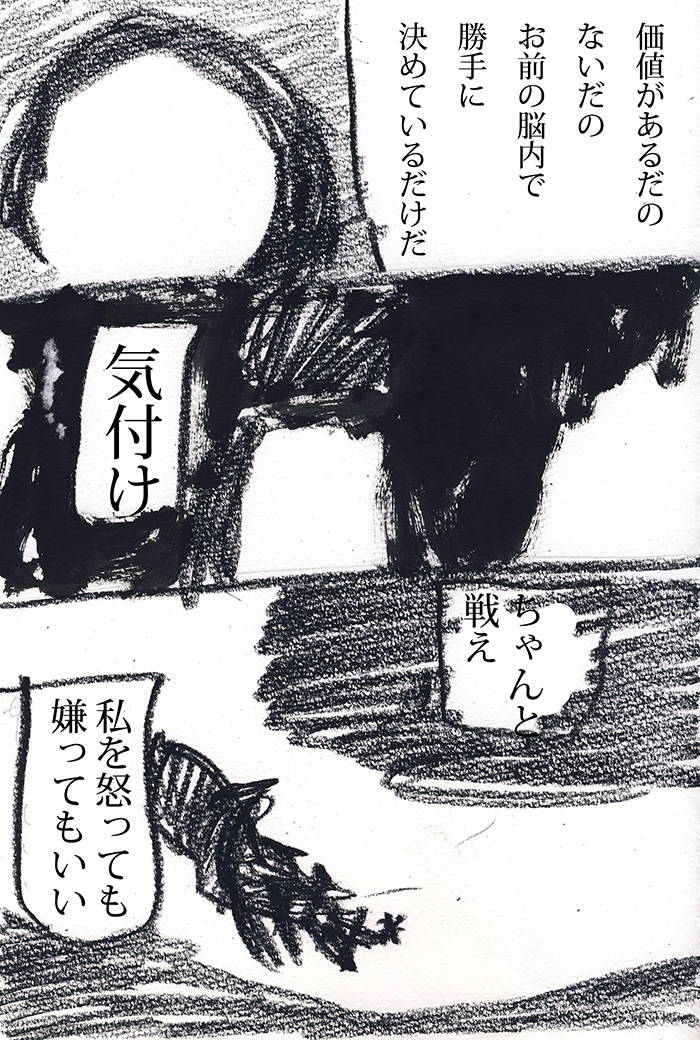 価値があるだの
ないだの
お前の脳内で
勝手に
決めているだけだ
気付け
ちゃんと
戦え
私を怒っても
嫌ってもいい